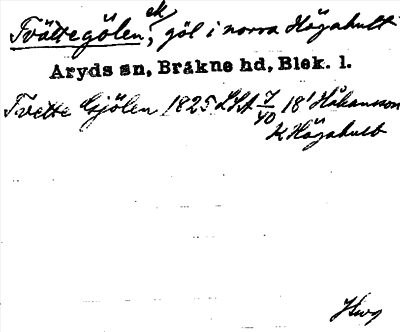 Tvättegölen, ek, göl i norra Högahult
Aryds sn, Bräkne hd, Blek. l.
Tvette Gjölen 1825 LSA 7/40 18' Håkansson
K Högahult